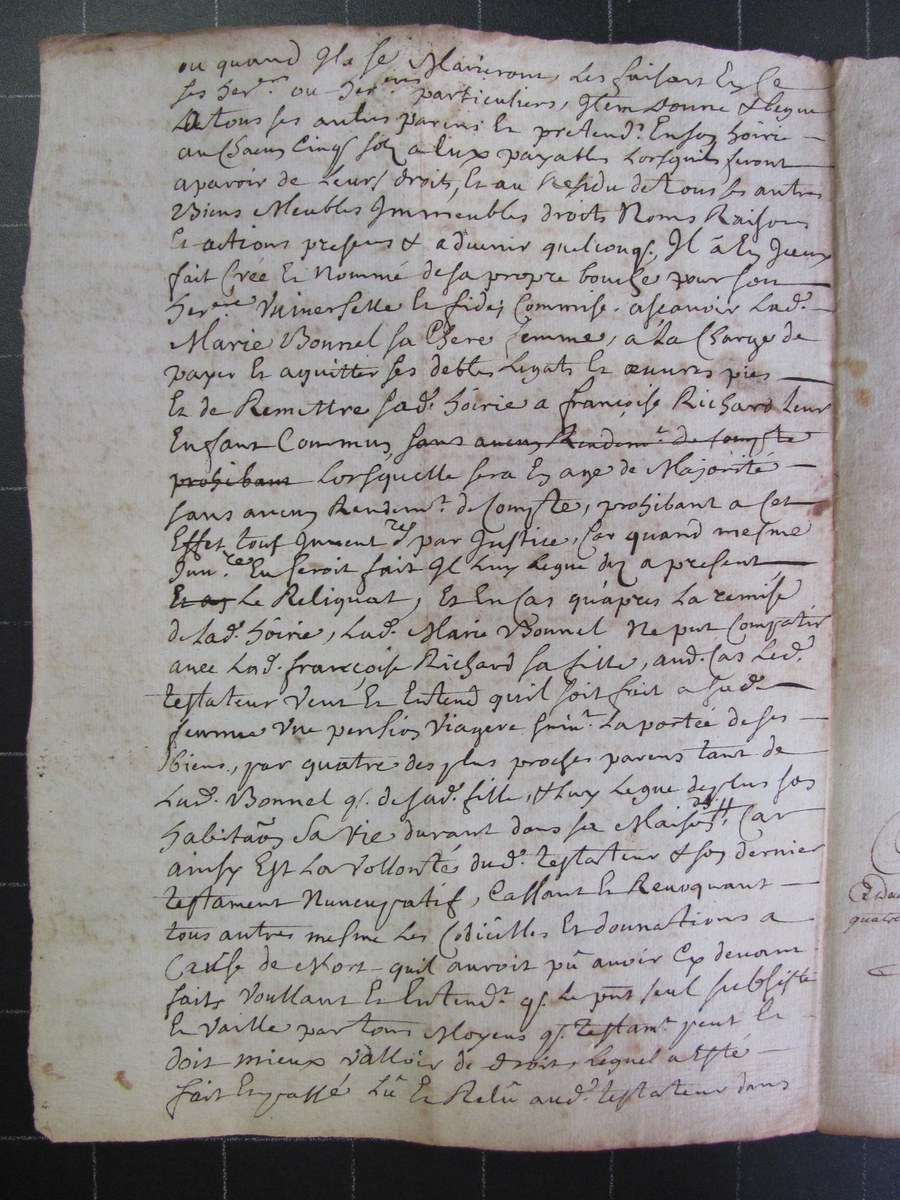 ou quand Ils se Marieront, les faisant En ce
ses her.ers ou her.eres particuliers, Item donne & legue
A tous ses autres parens Et pretend.t En son hoirie
au Chacun Cinq sols a Eux payables Lorsquils feront
aparoir de Leurs droits, Et au Residu de tous ses autres
Biens Meubles Immeubles droits Noms Raisons
Et actions presens & aduenir quelconqs. Il à En Iceux
fait Crée Et Nommé de sa propre bouche pour son
her.ere Vniverselle Et fidei Commise. ascavoir Lad.e
Marie Bonnel sa Chere femme, a La Charge de
payer Et aquitter ses debtes Legats Et œuvres pies
Et de Remettre sad.e hoirie a françoise Richard Leur
Enfant Commun, sans aucun Rendem.t de Compte
prohibant Lorsquelle sera En age de Majorité
sans aucun Rendem.t de Compte, prohibant a Cet
Effet tout Invent.re par Justice, Car quand mesme
Inv.re En seroit fait Il Luy Legue dez a present
Et Le Reliquat, Et En Cas qu'apres La remise
de Lad.e hoirie, Lad.e Marie Bonnel Ne put Compatir
avec Lad.e françoise Richard sa fille, aud. Cas Led.t
testateur Veut Et Entend quil soit fait a sad.e
femme Vne pension Viagere suiv.t La portée de ses
biens, par quatre des plus proches parens tant de
Lad.e Bonnel q. de sad.e fille, & Luy Legue de plus son
habitãon Sa Vie durant dans sa Maison, Car
ainsy Est La Vollonté dud.t testateur & son dernier
testament Nuncupatif, Cassant Et Revoquant
tous autres mesme Les Codicilles Et donnations a
Cause de Mort quil auroit pû avoir Cy devant
faits Voullant Et Entend.t q. Le pñt seul subsiste
Et Vaille par tous Moyens q. testam.t peut Et
doit mieux valloir de droit, Lequel a Esté
fait Et passé Lû Et Relû aud.t testateur dans
quatre